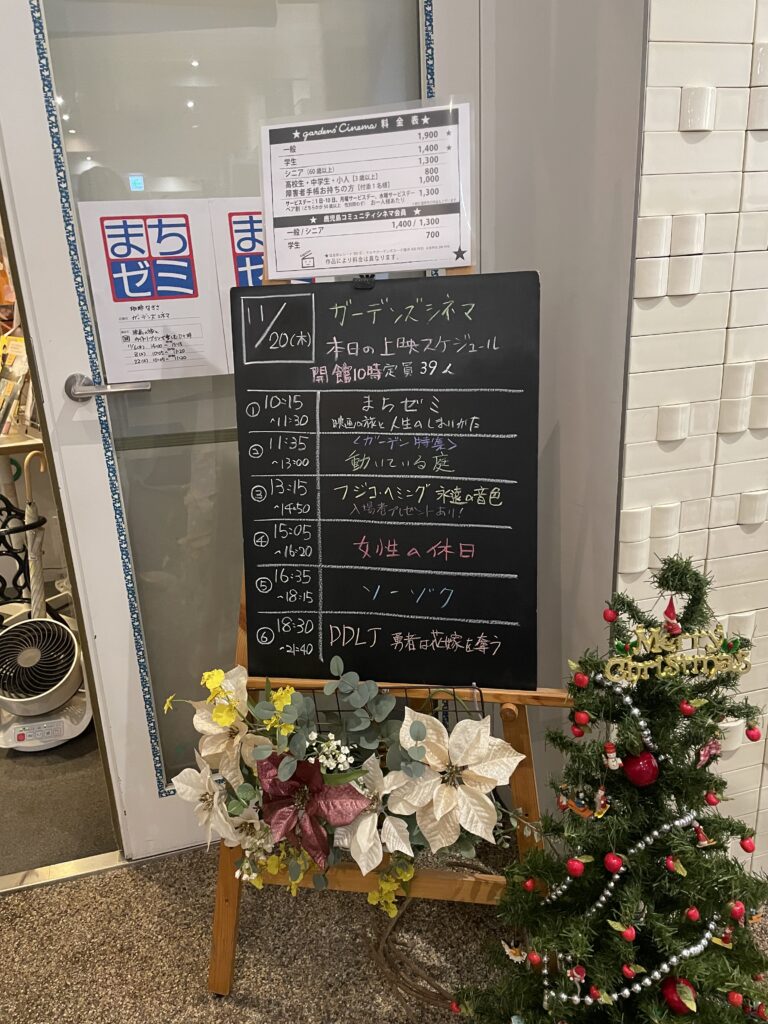 ★ gardens' Cinema 料金表 ★
一般 1,900 ★
学生 1,400 ★
シニア (60歳以上) 1,300
高校生・中学生・小人 [3歳以上] 800
障害者手帳お持ちの方 [付添1名様] 1,000
サービスデー:1日・10日、月曜サービスデー、水曜サービスデー 1,300
ペア割 お一人様あたり
★ 鹿児島コミュニティシネマ会員 ★
一般/シニア 1,400 / 1,300
学生 700
作品により料金は異なります。
まち
ゼミ
まち
ゼ
ガーデンズシネマ
11/20(木)
ガーデンズシネマ
本日の上映スケジュール
開館10時 定員39人
① 10:15 ~11:30 まちゼミ
映画の旅と人生のしまいかた
② 11:35 ~13:00 <ガーデン特集>
動いている庭
③ 13:15 ~14:50 フジコ・ヘミング 永遠の音色
入場者プレゼントあり!
④ 15:05 ~16:20 女性の休日
⑤ 16:35 ~18:15 ソーゾク
⑥ 18:30 ~21:40 DDLJ 勇者は花嫁を奪う
Merry
Christmas